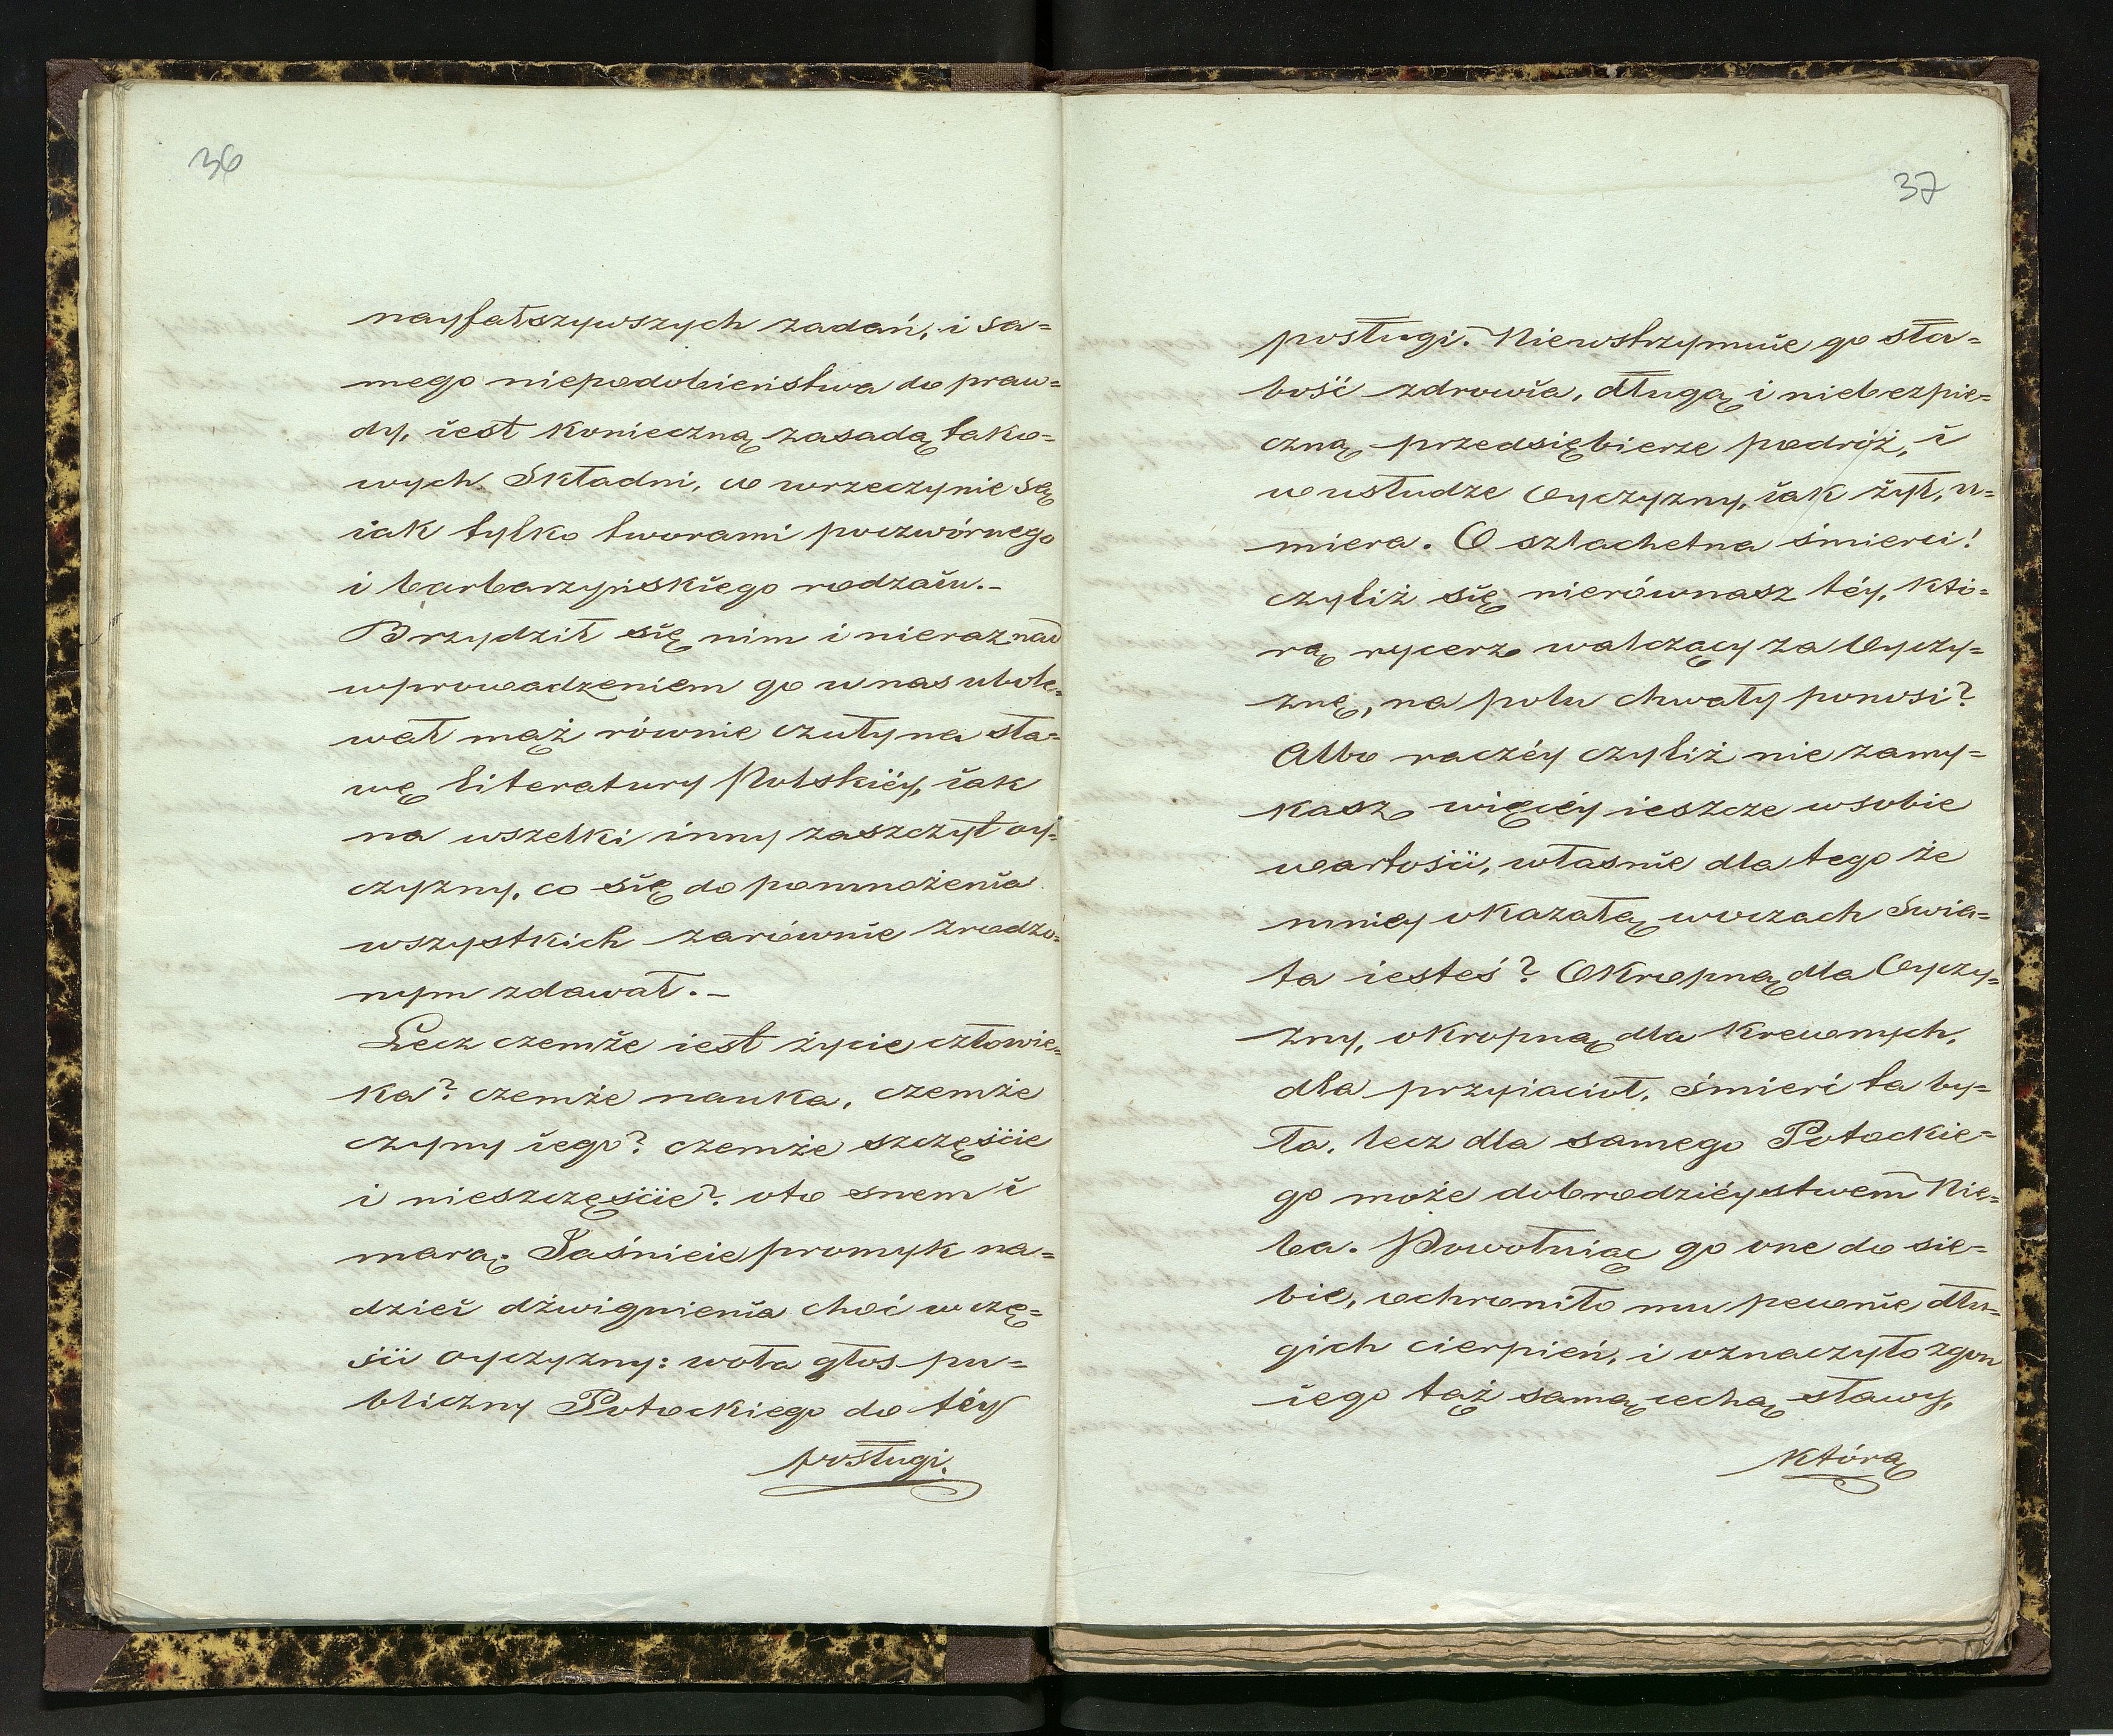 36
nayfałszywszych zadań, i sa=
mego niepodobieństwa do praw=
dy, iest konieczną zasadą tako=
wych Składni, w wrzeczynie są
iak tylko tworami poczwórnego
i barbarzyńskiego rodzaiu.-
Brzydził się nim i nieraz nad
wprowadzeniem go u nas ubole=
wał mąż równie czuły na sła=
wę literatury Polskiéy, iak
na wszelki inny zaszczyt oy=
czyzny, co się do pomnożenia
wszystkich zarównie zrodzo=
nym zdawał.-
Lecz czemże iest życie człowie=
ka? czemże nauka, czemże
czyny iego? czemże szczęście
i nieszczęście? oto snem i
marą. Jaśnieie promyk na=
dziei dźwignienia choć w czę=
ści oyczyzny: woła głos pu=
bliczny Potockiego do téy
posługi.
37
posługi. Niewstrzymuie go sła=
bość zdrowia, długą i niebezpie=
czną przedsiębierze podróż, i
w usłudze Oyczyzny, iak żył, u=
miera. O szlachetna śmierci!
czyliż się nierównasz téy, któ=
rą rycerz walczący za Oyczy=
znę, na polu chwały ponosi?
Albo raczéy czyliż nie zamy=
kasz więcéy ieszcze w sobie
wartości, własnie dla tego że
mniey okazałą w oczach Swia=
ta iesteś? Okropną dla Oyczy=
zny, okropną dla Krewnych,
dla przyiaciół, śmierć ta by=
ła, lecz dla samego Potockie=
go może dobrodziéystwem Nie=
ba. Powołuiąc go one do sie=
bie, ochroniło mu pewnie dłu=
gich cierpień, i oznaczyło zgon
iego taż samą cechą sławy,
którą